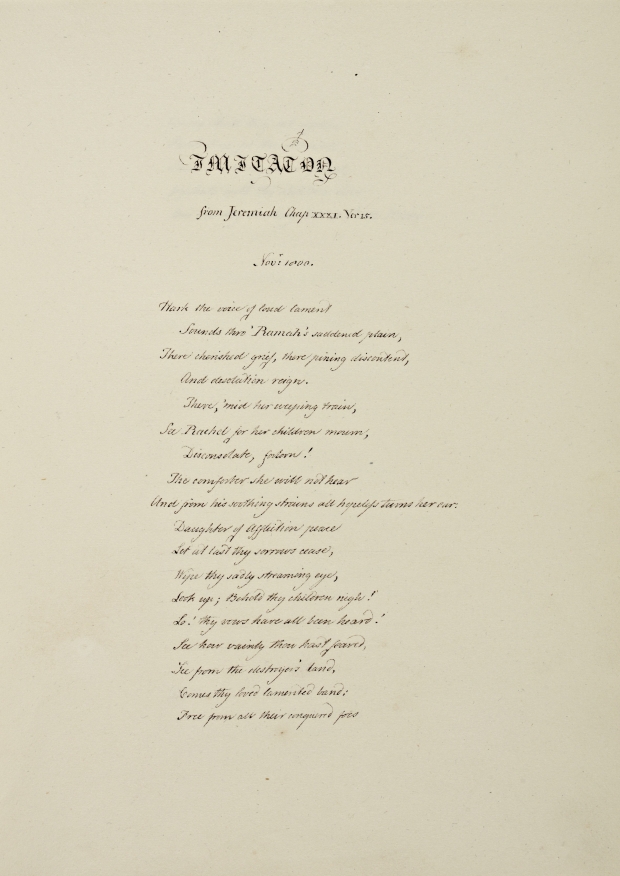 IMITATION
from Jeremiah Chap XXXI. Ver 15.
Novr. 1800.
Hark the voice of loud lament
Sounds thro' Ramah's saddened plain,
There cherished grief, there pining discontent,
And desolation reign.
There, 'mid her weeping train,
See Rachel for her children mourn,
Disconsolate, forlorn!
The comforter she will not hear
And from his soothing strains all hopeless turns her ear.
Daughter of Affliction peace
Let at last thy sorrows cease,
Wipe thy sadly streaming eye,
Look up; Behold thy children nigh!
Lo! thy vows have all been heard!
See how vainly thou hast feared,
See from the destroyer's land,
Comes thy loved lamented band;
Free from all their conquered foes